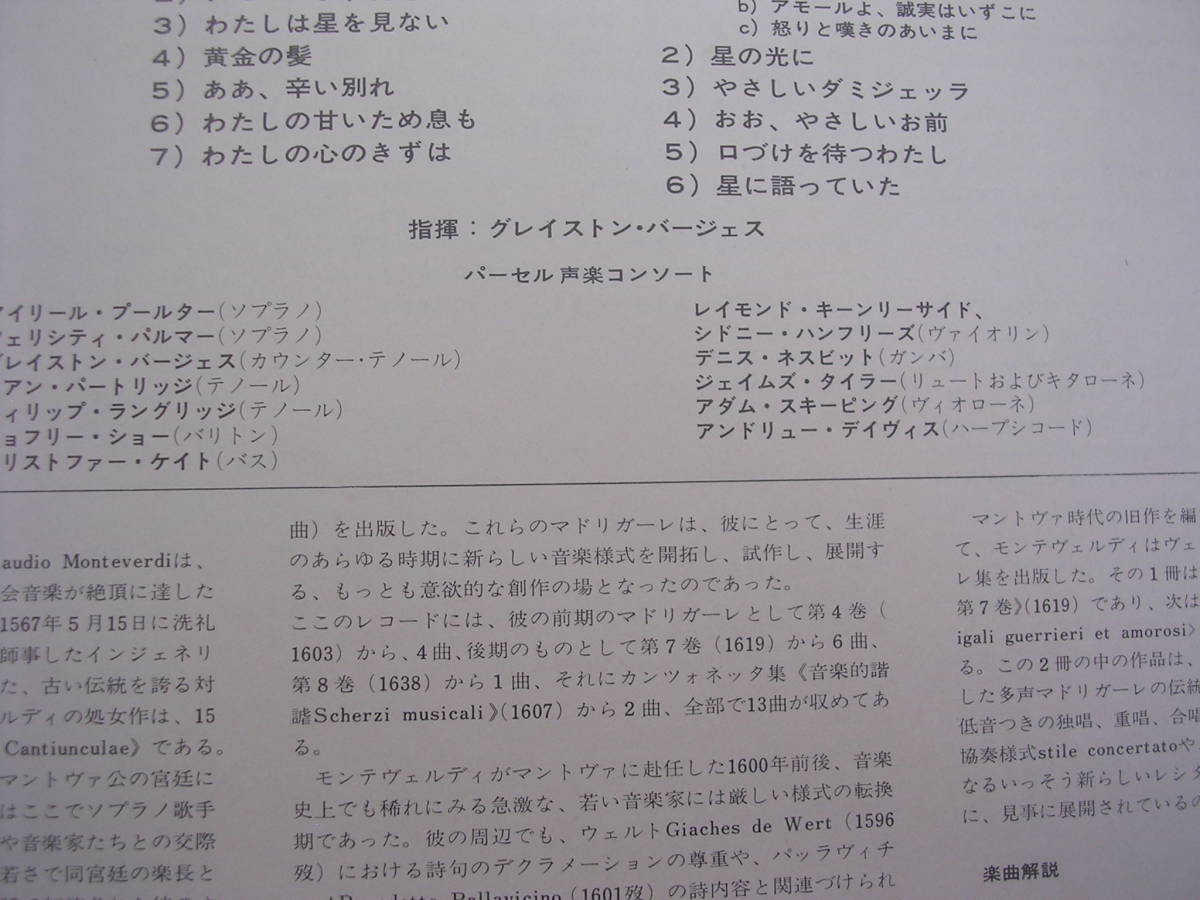 3) わたしは星を見ない
4) 黄金の髪
5) ああ、辛い別れ
6) わたしの甘いため息も
7) わたしの心のきずは
b) アモールよ、誠実はいずこに
c) 怒りと嘆きのあいまに
2) 星の光に
3) やさしいダミジェッラ
4) おお、やさしいお前
5) 口づけを待つわたし
6) 星に語っていた
指揮：グレイストン・バージェス
パーセル声楽コンソート
アイリール・プールター(ソプラノ)
ェリシティ・パルマー(ソプラノ)
グレイストン・バージェス(カウンター・テノール)
アン・パートリッジ(テノール)
ィリップ・ラングリッジ(テノール)
ョフリー・ショー(バリトン)
リストファー・ケイト(バス)
レイモンド・キーンリーサイド、
シドニー・ハンフリーズ(ヴァイオリン)
デニス・ネスビット(ガンバ)
ジェイムズ・タイラー(リュートおよびキタローネ)
アダム・スキーピング(ヴィオローネ)
アンドリュー・デイヴィス(ハープシコード)
audio Monteverdiは、
会音楽が絶頂に達した
1567年5月15日に洗礼
師事したインジェネリ
た、古い伝統を誇る対
ルディの処女作は、15
Cantiunculae》である。
マントヴァ公の宮廷に
はここでソプラノ歌手
や音楽家たちとの交際
若さで同宮廷の楽長と
曲）を出版した。これらのマドリガーレは、彼にとって、生涯
のあらゆる時期に新らしい音楽様式を開拓し、試作し、展開す
る、もっとも意欲的な創作の場となったのであった。
ここのレコードには、彼の前期のマドリガーレとして第4巻（
1603）から、4曲、後期のものとして第7巻（1619）から6曲、
第8巻（1638）から1曲、それにカンツォネッタ集《音楽的諧
謔Scherzi musicali》(1607）から2曲、全部で13曲が収めてあ
る。
モンテヴェルディがマントヴァに赴任した1600年前後、音楽
史上でも稀れにみる急激な、若い音楽家には厳しい様式の転換
期であった。彼の周辺でも、ウェルトGiaches de Wert（1596
歿）における詩句のデクラメーションの尊重や、パッラヴィチ
Benedetto Pallavicino（1601歿）の詩内容と関連づけられ
マントヴァ時代の旧作を編
て、モンテヴェルディはヴェ
レ集を出版した。その1冊は
第7巻》(1619）であり、次は
igali guerrieri et amorosi》
る。この2冊の中の作品は、
した多声マドリガーレの伝統
低音つきの独唱、重唱、合唱
協奏様式stile concertatoや、
なるいっそう新らしいレシタ
に、見事に展開されているの
楽曲解説